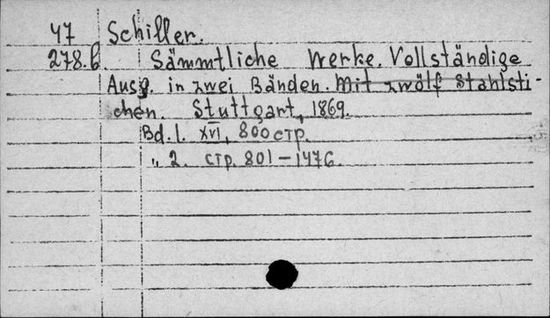 47 Schiller.
278.b. Sämmtliche Werke. Vollständige
Ausg. in zwei Bänden. Mit zwölf Stahlsti-
chen. Stuttgart, 1869.
Bd. 1. XVI, 800 стр.
„ 2. стр. 801-1476.